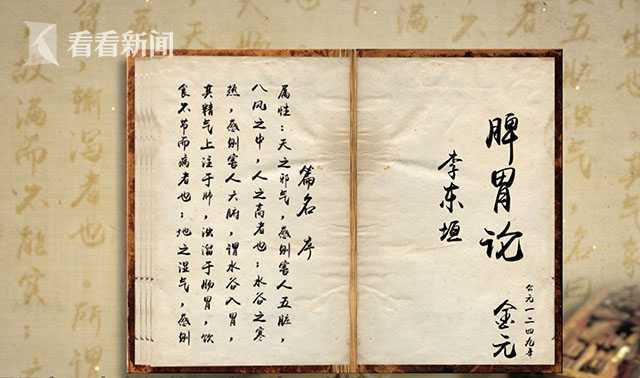 看看新闻
脾胃论
李东垣
公元一二四九年
金元
篇名 序
属性：天之邪气，感则害人五脏，
八风之中，人之高者也；水谷之寒
热，感则害人六腑，谓水谷入胃，
其精气上注于肺，浊溜于肠胃，饮
食不节而病者也；地之湿气，感则
输泻者也。所谓
故满而不能实